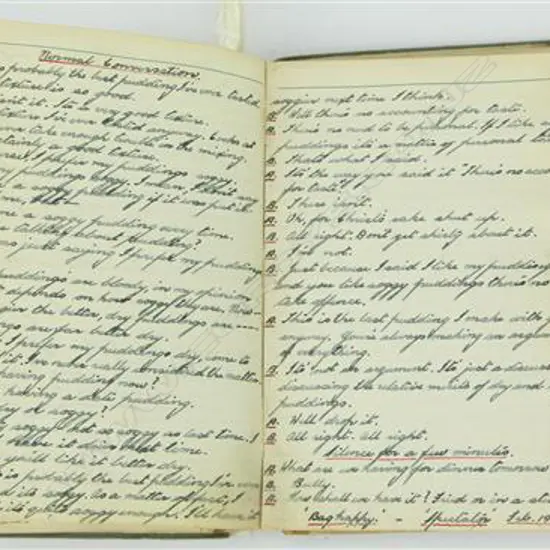 Normal Conversation.
is probably the best pudding I've ever tasted
texture is so good.
isn't it. It's a very good texture.
texture I've ever tasted anyway. Cooks at
ever take enough trouble in the mixing.
certainly a good texture.
I prefer my puddings soggy.
my puddings soggy. I mean, I
a soggy pudding if it was put in
me, but —
me a soggy pudding every time.
talked about pudding?
was just saying I prefer my puddings
puddings are bloody, in my opinion
depends on how soggy they are. Now —
the better, dry puddings are ----
puddings are far better dry.
I prefer my puddings dry, come to
it. I've never really considered the matter.
having pudding now?
having a date pudding.
dry or soggy?
soggy. Not so soggy as last time. I
have it done that time.
you'll like it better dry.
is probably the best pudding I've ever
and it's soggy. As a matter of fact, I
it's quite soggy enough. I'll have it
soggier next time I think.
B. Well there's no accounting for taste.
A. There's no need to be personal. If I like my
puddings it's a matter of personal taste
B. That's what I said.
A. It's the way you said it "There's no accou
for taste".
B. There isn't.
A. Oh, for Christ's sake shut up.
B. All right. Don't get shirty about it.
A. I'm not.
B. Just because I said I like my puddings
and you like soggy puddings there's no
take offence.
A. This is the last pudding I make with
anyway. You're always making an argum
of everything.
B. It's not an argument. It's just a discuss
discussing the relative merits of dry and
puddings.
A. Well drop it.
B. All right. All right.
Silence for a few minutes.
A. What are we having for dinner tomorrow
B. Bully.
A. How shall we have it? Fried or in a ste
'Bag happy.' - 'Spectator' Feb. 19